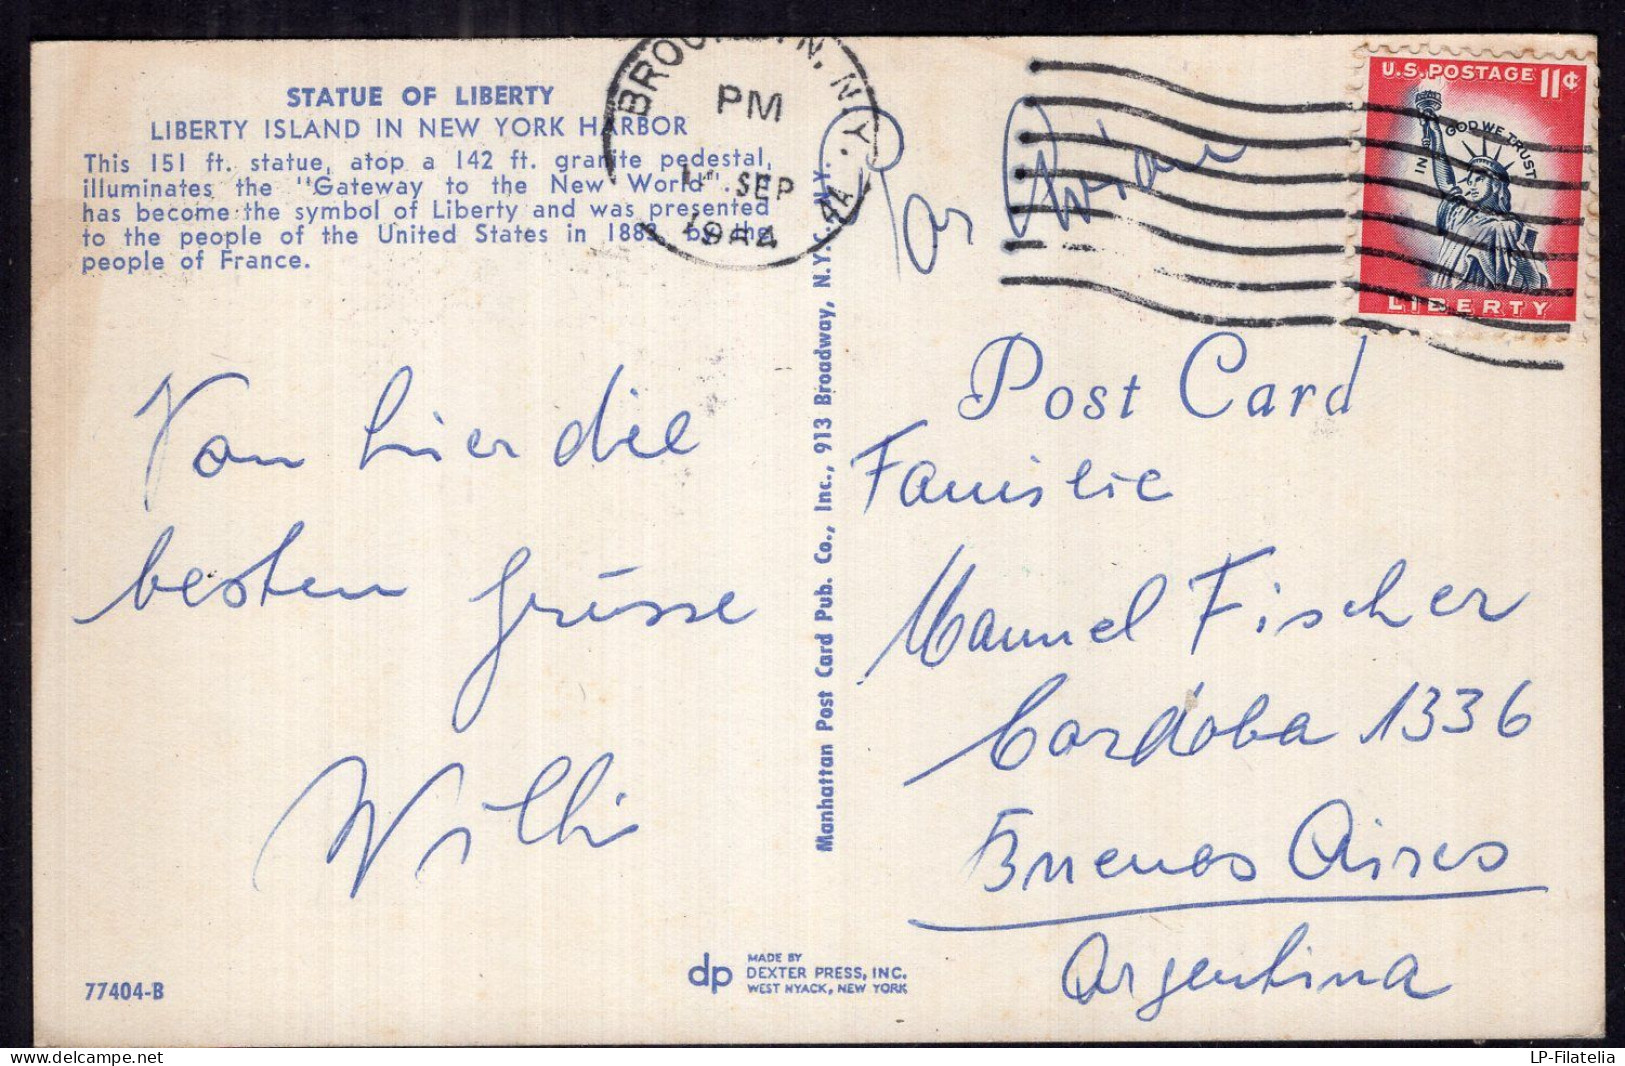 STATUE OF LIBERTY
LIBERTY ISLAND IN NEW YORK HARBOR
This 151 ft. statue, atop a 142 ft. granite pedestal,
illuminates the "Gateway to the New World".
has become the symbol of Liberty and was presented
to the people of the United States in 1883 by the
people of France.
BROOKLYN, N.Y.
PM
SEP
Par Avion
U.S. POSTAGE 11¢
IN GOD WE TRUST
LIBERTY
Von hier die
besten Grüsse
Willi
Manhattan Post Card Pub. Co., Inc., 913 Broadway, N.Y.C. N.Y.
Post Card
Familie
Manuel Fischer
Cordoba 1336
Buenos Aires
Argentina
77404-B
dp MADE BY
DEXTER PRESS, INC.
WEST NYACK, NEW YORK
www.delcampe.net
LP-Filatelia